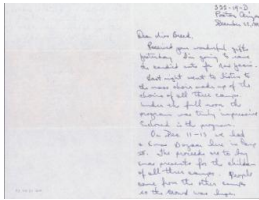 325-14-D
Poston, Arizona
December 25, 
Dear Miss Breed,
Received your wonderful gifts
yesterday. I'm going to save
the candied nuts for New years.
Last night went to listen to
the mass choir made up of the
choirs of all three camps.
Under the full moon the
program was truly impressive
included in the program.
On Dec 11-13 we had
a Bazaar here in Camp
The proceeds are to buy
Xmas presents for the children
of all three camps. People
came from the other camps
so the crowd was huge.